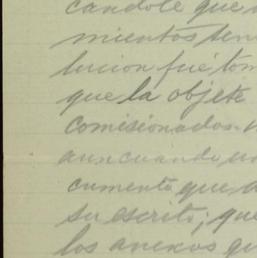 candole que
mientos ten
lucion fué tom
que la objete
comisionados.
aun cuando
cumento que a
su escrito; que
los anexos qu